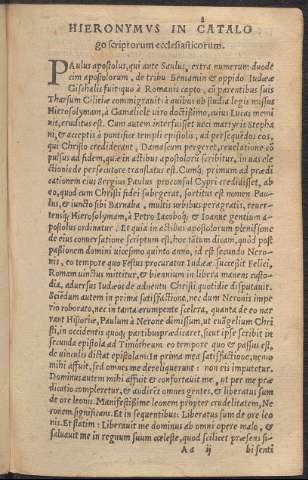 HIERONYMVS IN CATALO
go scriptorum ecclesiasticorum.
PAulus apostolus, qui ante Saulus, extra numerum duode
cim apostolorum, de tribu Beniamin & oppido Iudææ
Gischalis fuit: quo à Romanis capto, cū parentibus suis
Tharsum Ciliciæ commigravit: à quibus ob studia legis missus
Hierosolymam, à Gamaliele viro doctissimo, cuius Lucas memi
nit, eruditus est. Cum autem interfuisset neci martyris Stepha
ni, & acceptis à pontifice templi epistolis, ad persequēdos eos,
qui Christo crediderant, Damascum pergeret, revelatione cō
pulsus ad fidem, quæ in actibus apostolorū scribitur, in vas ele
ctionis de persecutore translatus est. Cumq; primum ad prædi
cationem eius Sergius Paulus proconsul Cypri credidisset, ab
eo, quòd eum Christi fidei subegerat, sortitus est nomen Pau-
lus, & iuncto sibi Barnaba, multis urbibus peragratis, rever-
tensq; Hierosolymam, à Petro Iacoboq; & Ioanne gentium a-
postolus ordinatur. Et quia in actibus apostolorum plenissime
de eius conversatione scriptum est, hoc tātum dicam, quòd post
passionem domini vicesimo quinto anno, id est secundo Nero-
nis, eo tempore quo Festus procurator Iudææ successit Felici,
Romam vinctus mittitur, & biennium in libera manens custo-
dia, adversus Iudæos de adventu Christi quotidie disputavit.
Sciēdum autem in prima satisfactione, nec dum Neronis impe
rio roborato, nec in tanta erumpente scelera, quanta de eo nar
rant Historiæ, Paulum à Nerone dimissum, ut euāgelium Chri
sti, in occidentis quoq; partibus prædicaret, sicut ipse scribit in
secunda epistola ad Timotheum eo tempore quo & passus est,
de vinculis dictat epistolam: In prima mea satisfactione, nemo
mihi affuit, sed omnes me dereliquerunt: non eis imputetur.
Dominus autem mihi affuit & confortavit me, ut per me præ
dicatio completeretur, & audiret omnes gentes, & liberatus sum
de ore leonis. Manifestissime leonem propter crudelitatem, Ne
ronem significans. Et in sequentibus: Liberatus sum de ore leo
nis. Et statim: Liberavit me dominus ab omni opere malo, &
salvavit me in regnum suum cœleste, quòd scilicet præsens si-
Aa ij bi senti